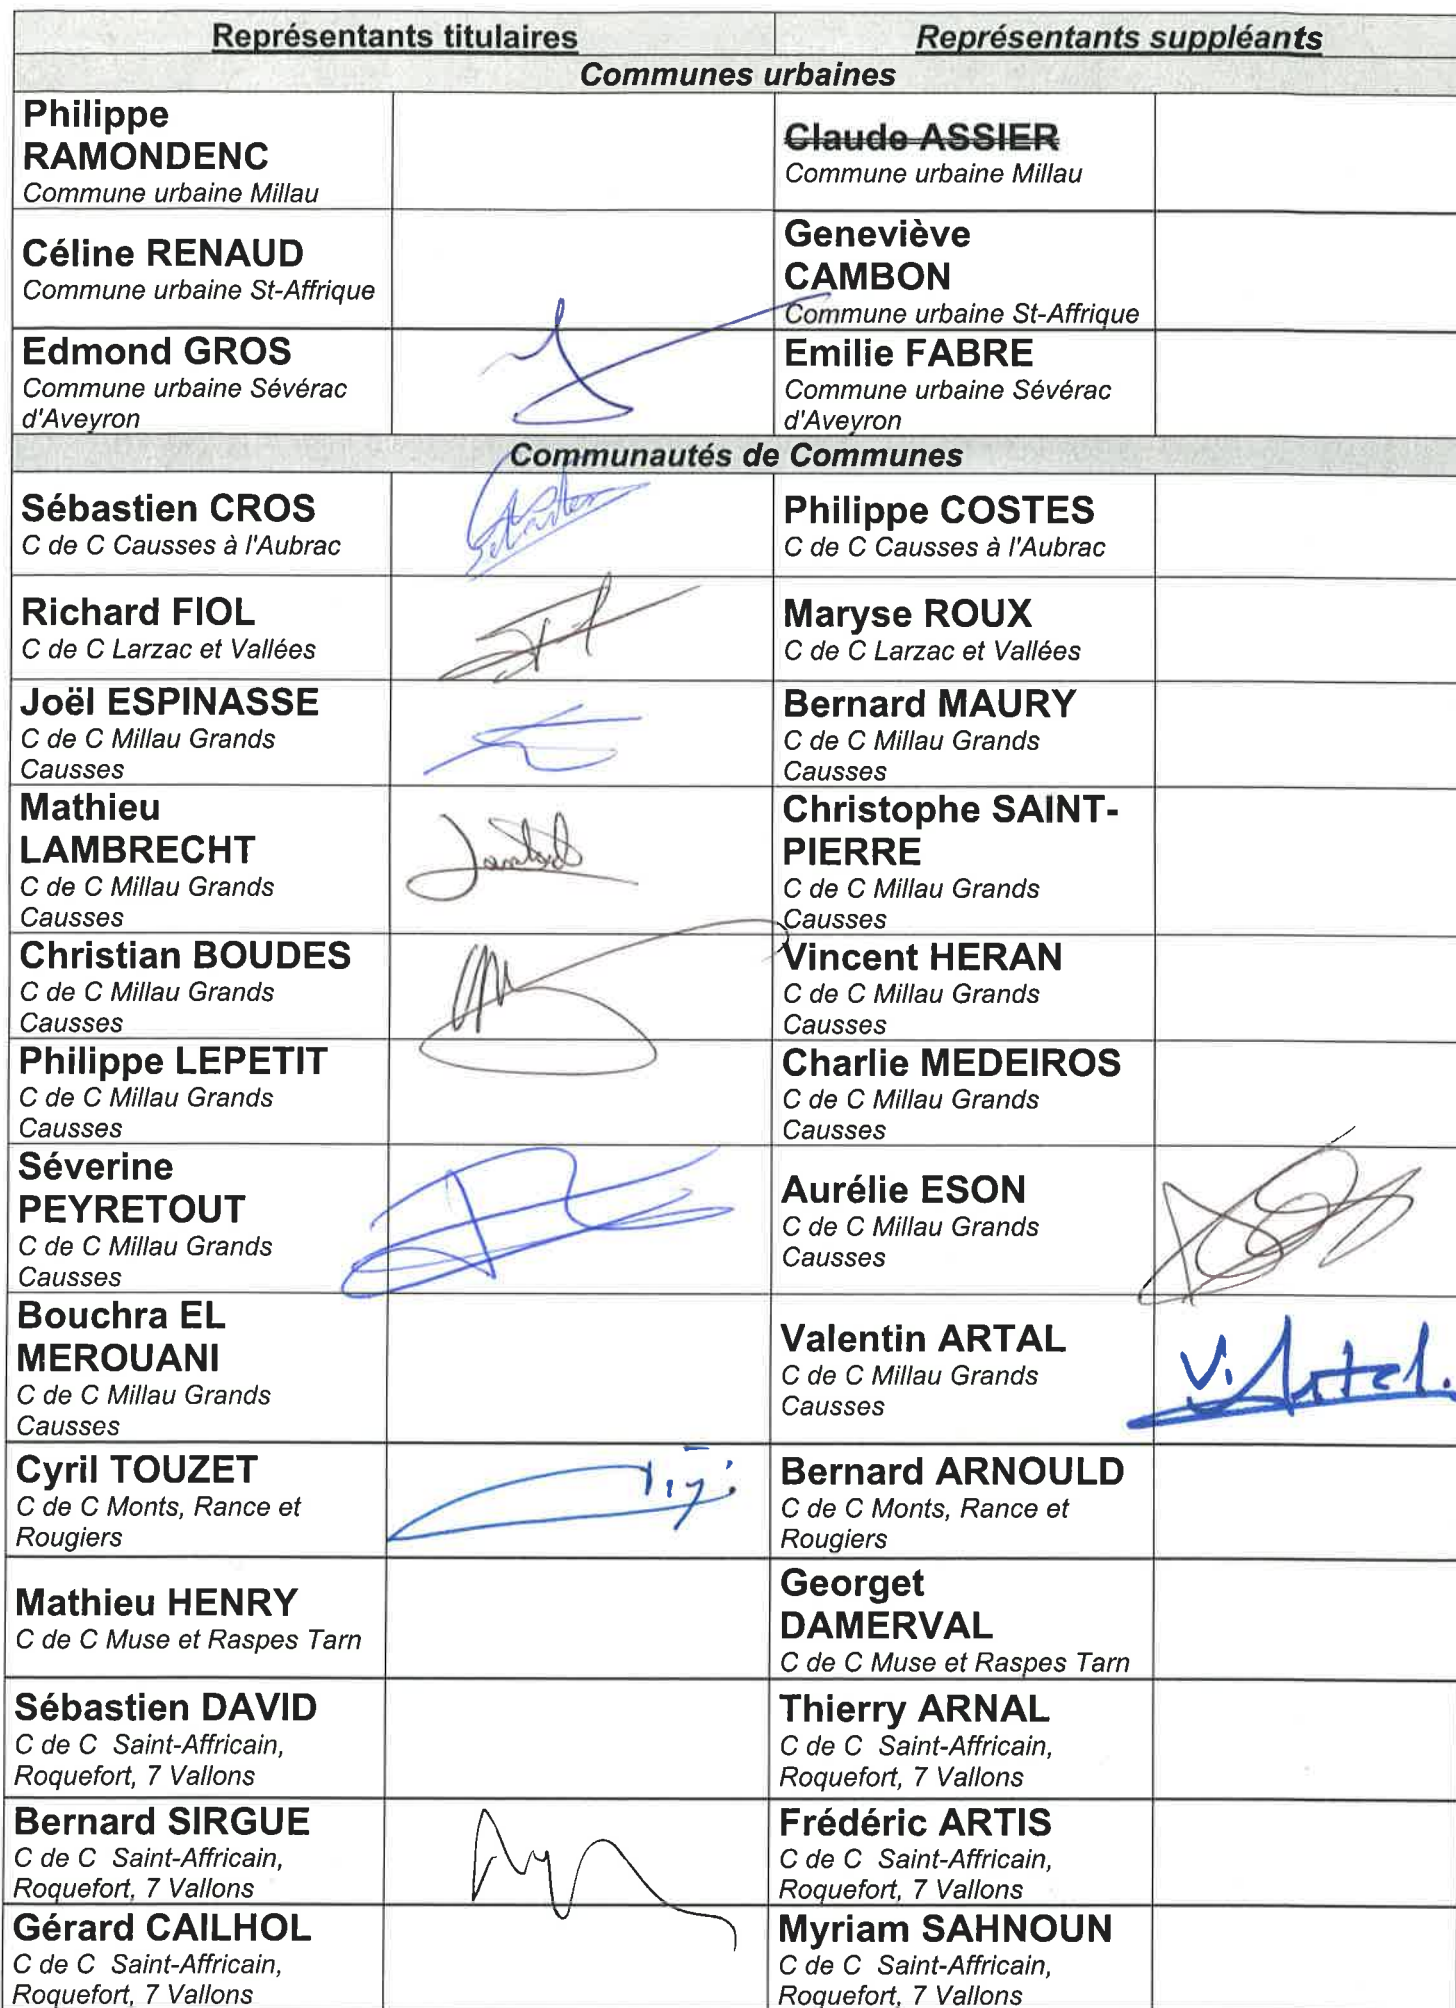 Représentants titulaires
Représentants suppléants
Communes urbaines
Philippe
RAMONDENC
Commune urbaine Millau
Claude ASSIER
Commune urbaine Millau
Céline RENAUD
Commune urbaine St-Affrique
Geneviève
CAMBON
Commune urbaine St-Affrique
Edmond GROS
Commune urbaine Sévérac
d'Aveyron
Emilie FABRE
Commune urbaine Sévérac
d'Aveyron
Communautés de Communes
Sébastien CROS
C de C Causses à l'Aubrac
Philippe COSTES
C de C Causses à l'Aubrac
Richard FIOL
C de C Larzac et Vallées
Maryse ROUX
C de C Larzac et Vallées
Joël ESPINASSE
C de C Millau Grands
Causses
Bernard MAURY
C de C Millau Grands
Causses
Mathieu
LAMBRECHT
C de C Millau Grands
Causses
Christophe SAINT-
PIERRE
C de C Millau Grands
Causses
Christian BOUDES
C de C Millau Grands
Causses
Vincent HERAN
C de C Millau Grands
Causses
Philippe LEPETIT
C de C Millau Grands
Causses
Charlie MEDEIROS
C de C Millau Grands
Causses
Séverine
PEYRETOUT
C de C Millau Grands
Causses
Aurélie ESON
C de C Millau Grands
Causses
Bouchra EL
MEROUANI
C de C Millau Grands
Causses
Valentin ARTAL
C de C Millau Grands
Causses
V. Artal.
Cyril TOUZET
C de C Monts, Rance et
Rougiers
Bernard ARNOULD
C de C Monts, Rance et
Rougiers
Mathieu HENRY
C de C Muse et Raspes Tarn
Georget
DAMERVAL
C de C Muse et Raspes Tarn
Sébastien DAVID
C de C Saint-Affricain,
Roquefort, 7 Vallons
Thierry ARNAL
C de C Saint-Affricain,
Roquefort, 7 Vallons
Bernard SIRGUE
C de C Saint-Affricain,
Roquefort, 7 Vallons
Frédéric ARTIS
C de C Saint-Affricain,
Roquefort, 7 Vallons
Gérard CAILHOL
C de C Saint-Affricain,
Roquefort, 7 Vallons
Myriam SAHNOUN
C de C Saint-Affricain,
Roquefort, 7 Vallons